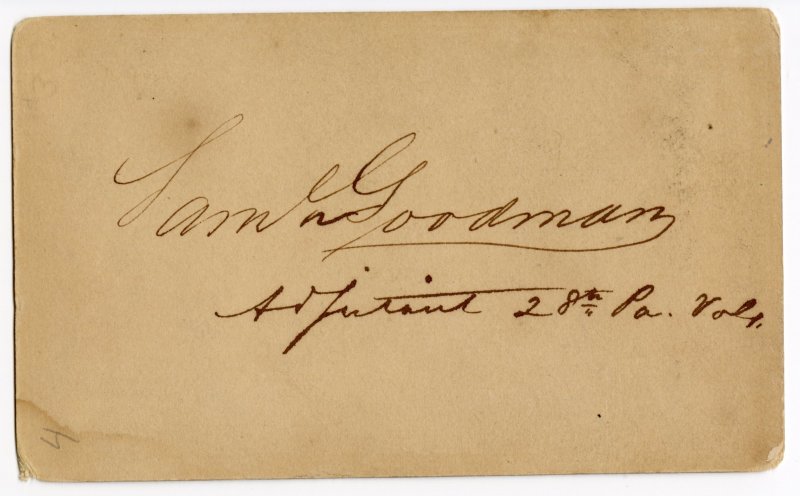 Saml Goodman
Adjutant 28th Pa. Vols.
4